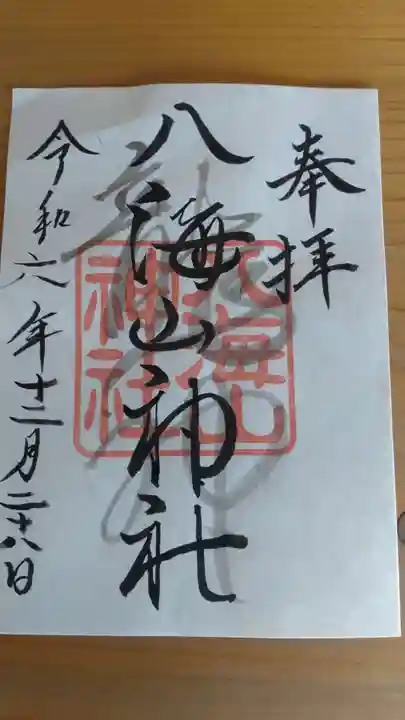 奉拝
八海山神社
八海山
神社
令和六年十二月二十八日